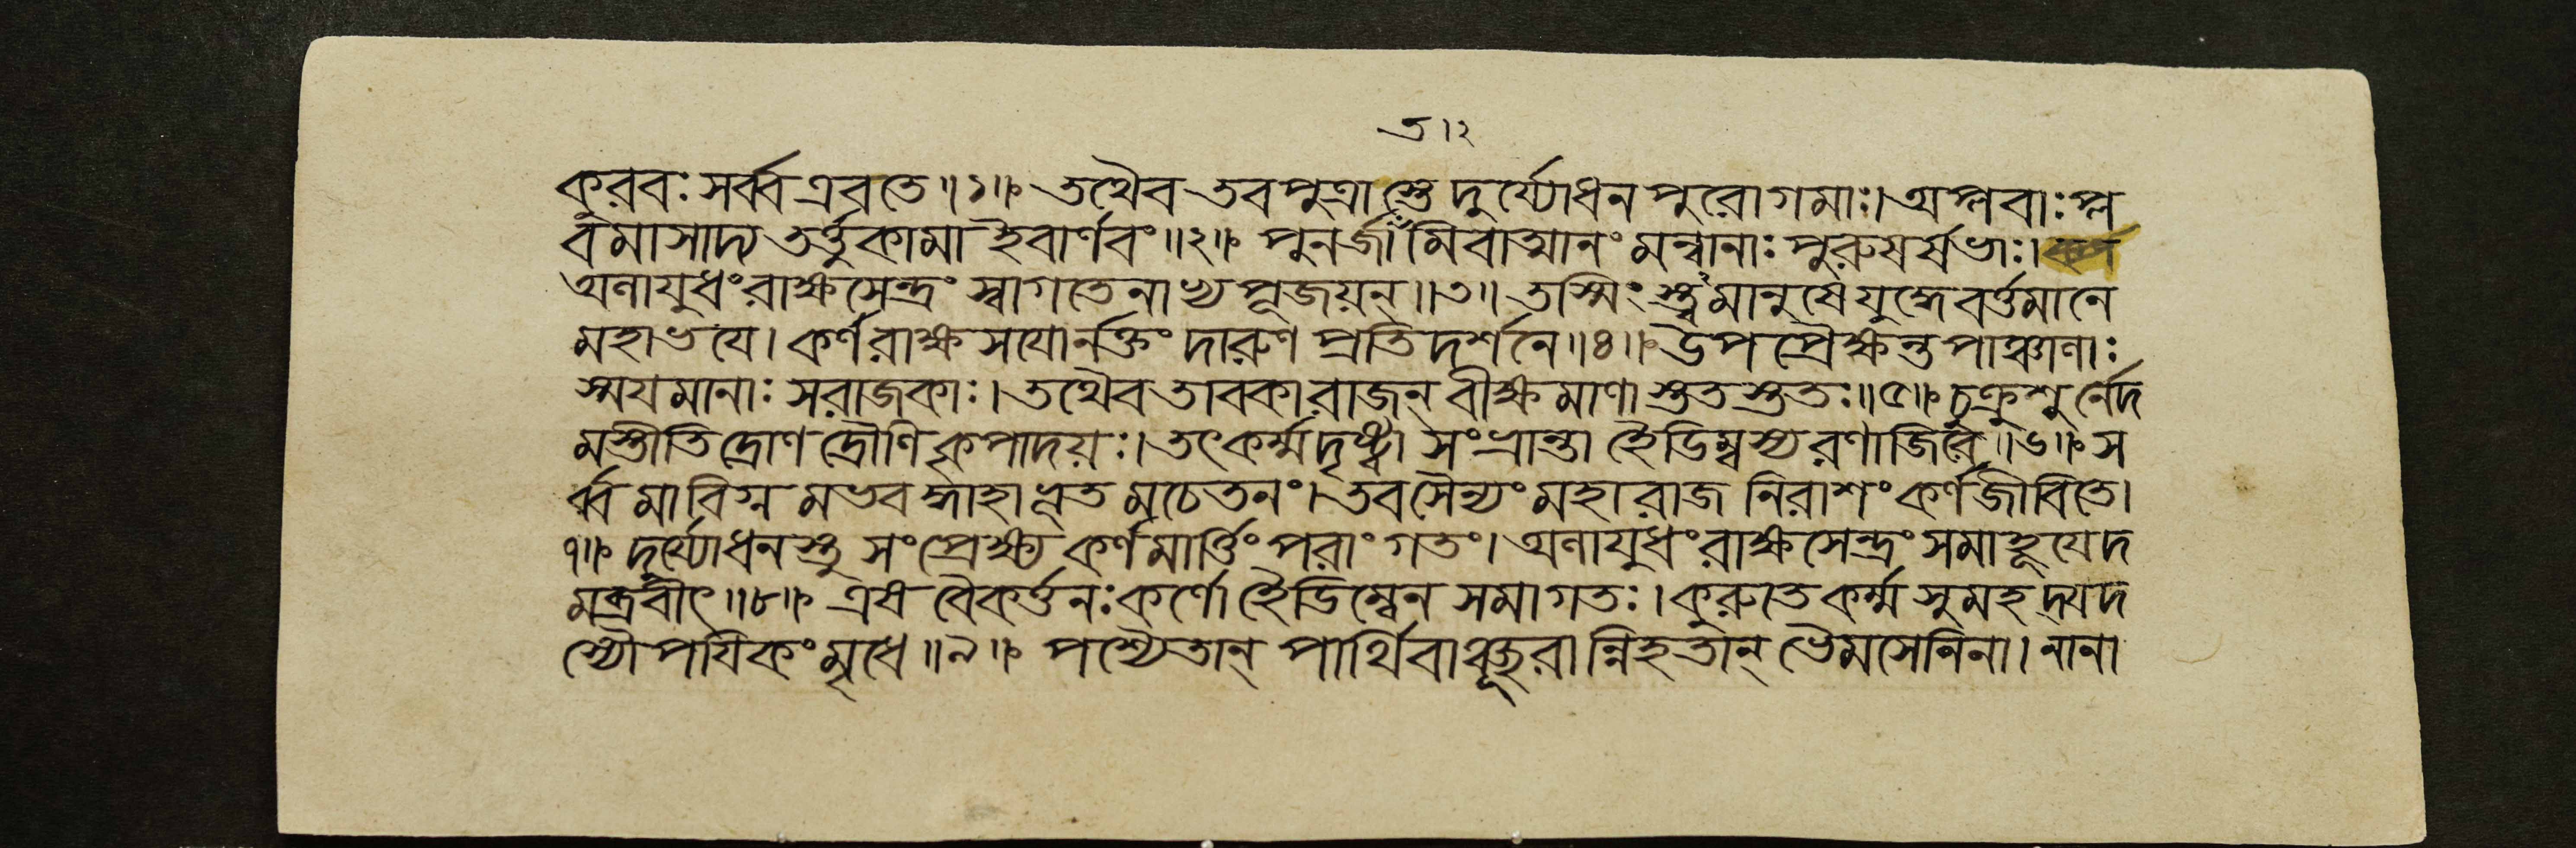 ৩।২
কুরবঃ সর্ব্ব এব তে॥১॥ তথৈব তব পুত্রাস্তে দুর্য্যোধনপুরোগমাঃ। অপ্লবাঃ প্ল
বমাসাদ্য তর্ত্তুকামা ইবার্ণবং॥২॥ পুনর্জ্জাতমিবাত্মানং মন্বানাঃ পুরুষর্ষভাঃ।
অলায়ুধং রাক্ষসেন্দ্রং স্বাগতেনাভ্যপূজয়ন্॥৩॥ তস্মিংস্ত্বমানুষে যুদ্ধে বর্ত্তমানে
মহাভয়ে। কর্ণরাক্ষসযোর্নক্তং দারুণপ্রতিদর্শনে॥৪॥ উপপ্রৈক্ষন্ত পাঞ্চালাঃ
স্ময়মানাঃ সরাজকাঃ। তথৈব তাবকা রাজন্ বীক্ষমাণাস্ততস্ততঃ॥৫॥ চুক্রুশুর্নেদ
মস্তীতি দ্রোণদ্রৌণিকৃপাদয়ঃ। তৎ কর্ম্ম দৃষ্ট্বা সংভ্রান্তা হৈডিম্বস্য রণাজিরে॥৬॥ স
র্ব্বমাবিগ্নমভবদ্ধাহাভূতমচেতনং। তব সৈন্যং মহারাজ নিরাশং কর্ণজীবিতে।
৭॥ দুর্য্যোধনস্তু সংপ্রেক্ষ্য কর্ণমার্ত্তিং পরাং গতং। অলায়ুধং রাক্ষসেন্দ্রং সমাহূয়েদ
মব্রবীৎ॥৮॥ এষ বৈকর্ত্তনঃ কর্ণো হৈডিম্বেন সমাগতঃ। কুরুতে কর্ম্ম সুমহদ্যদ
স্যৌপয়িকং মৃধে॥৯॥ পশ্যৈতান্ পার্থিবাঞ্ছূরান্নিহতান্ ভৈমসেনিনা। নানা